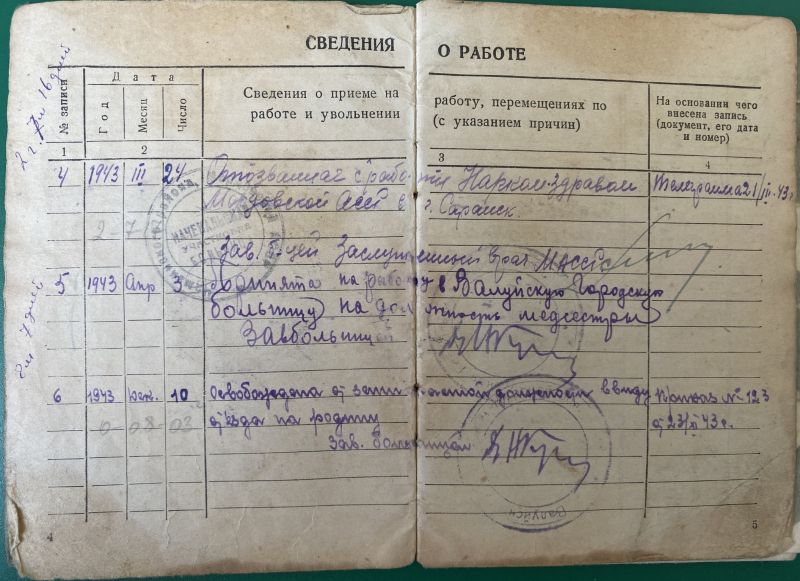 СВЕДЕНИЯ О РАБОТЕ
№ записи
Дата
Год
Месяц
Число
Сведения о приеме на работу, перемещениях по
работе и увольнении (с указанием причин)
На основании чего
внесена запись
(документ, его дата
и номер)
1 2 3 4
4 1943 III 24 Отозванная с работы Наркомздравом Телеграмма 21/III-43г
Мордовской АССР в г. Саранск.
2-7
Зав. Заслуженный врач МАССР
5 1943 Апр 3 Принята на работу в Валуйскую Городскую
больницу на должность медсестры
Завбольницей
6 1943 10 Освобождена от занимаемой должности ввиду Приказ № 123
отъезда на родину от 23/XI 43 г.
0-08-03
Зав. больницей
2 г. 16 дней
8 м 7 дней
Валуйск
4 5